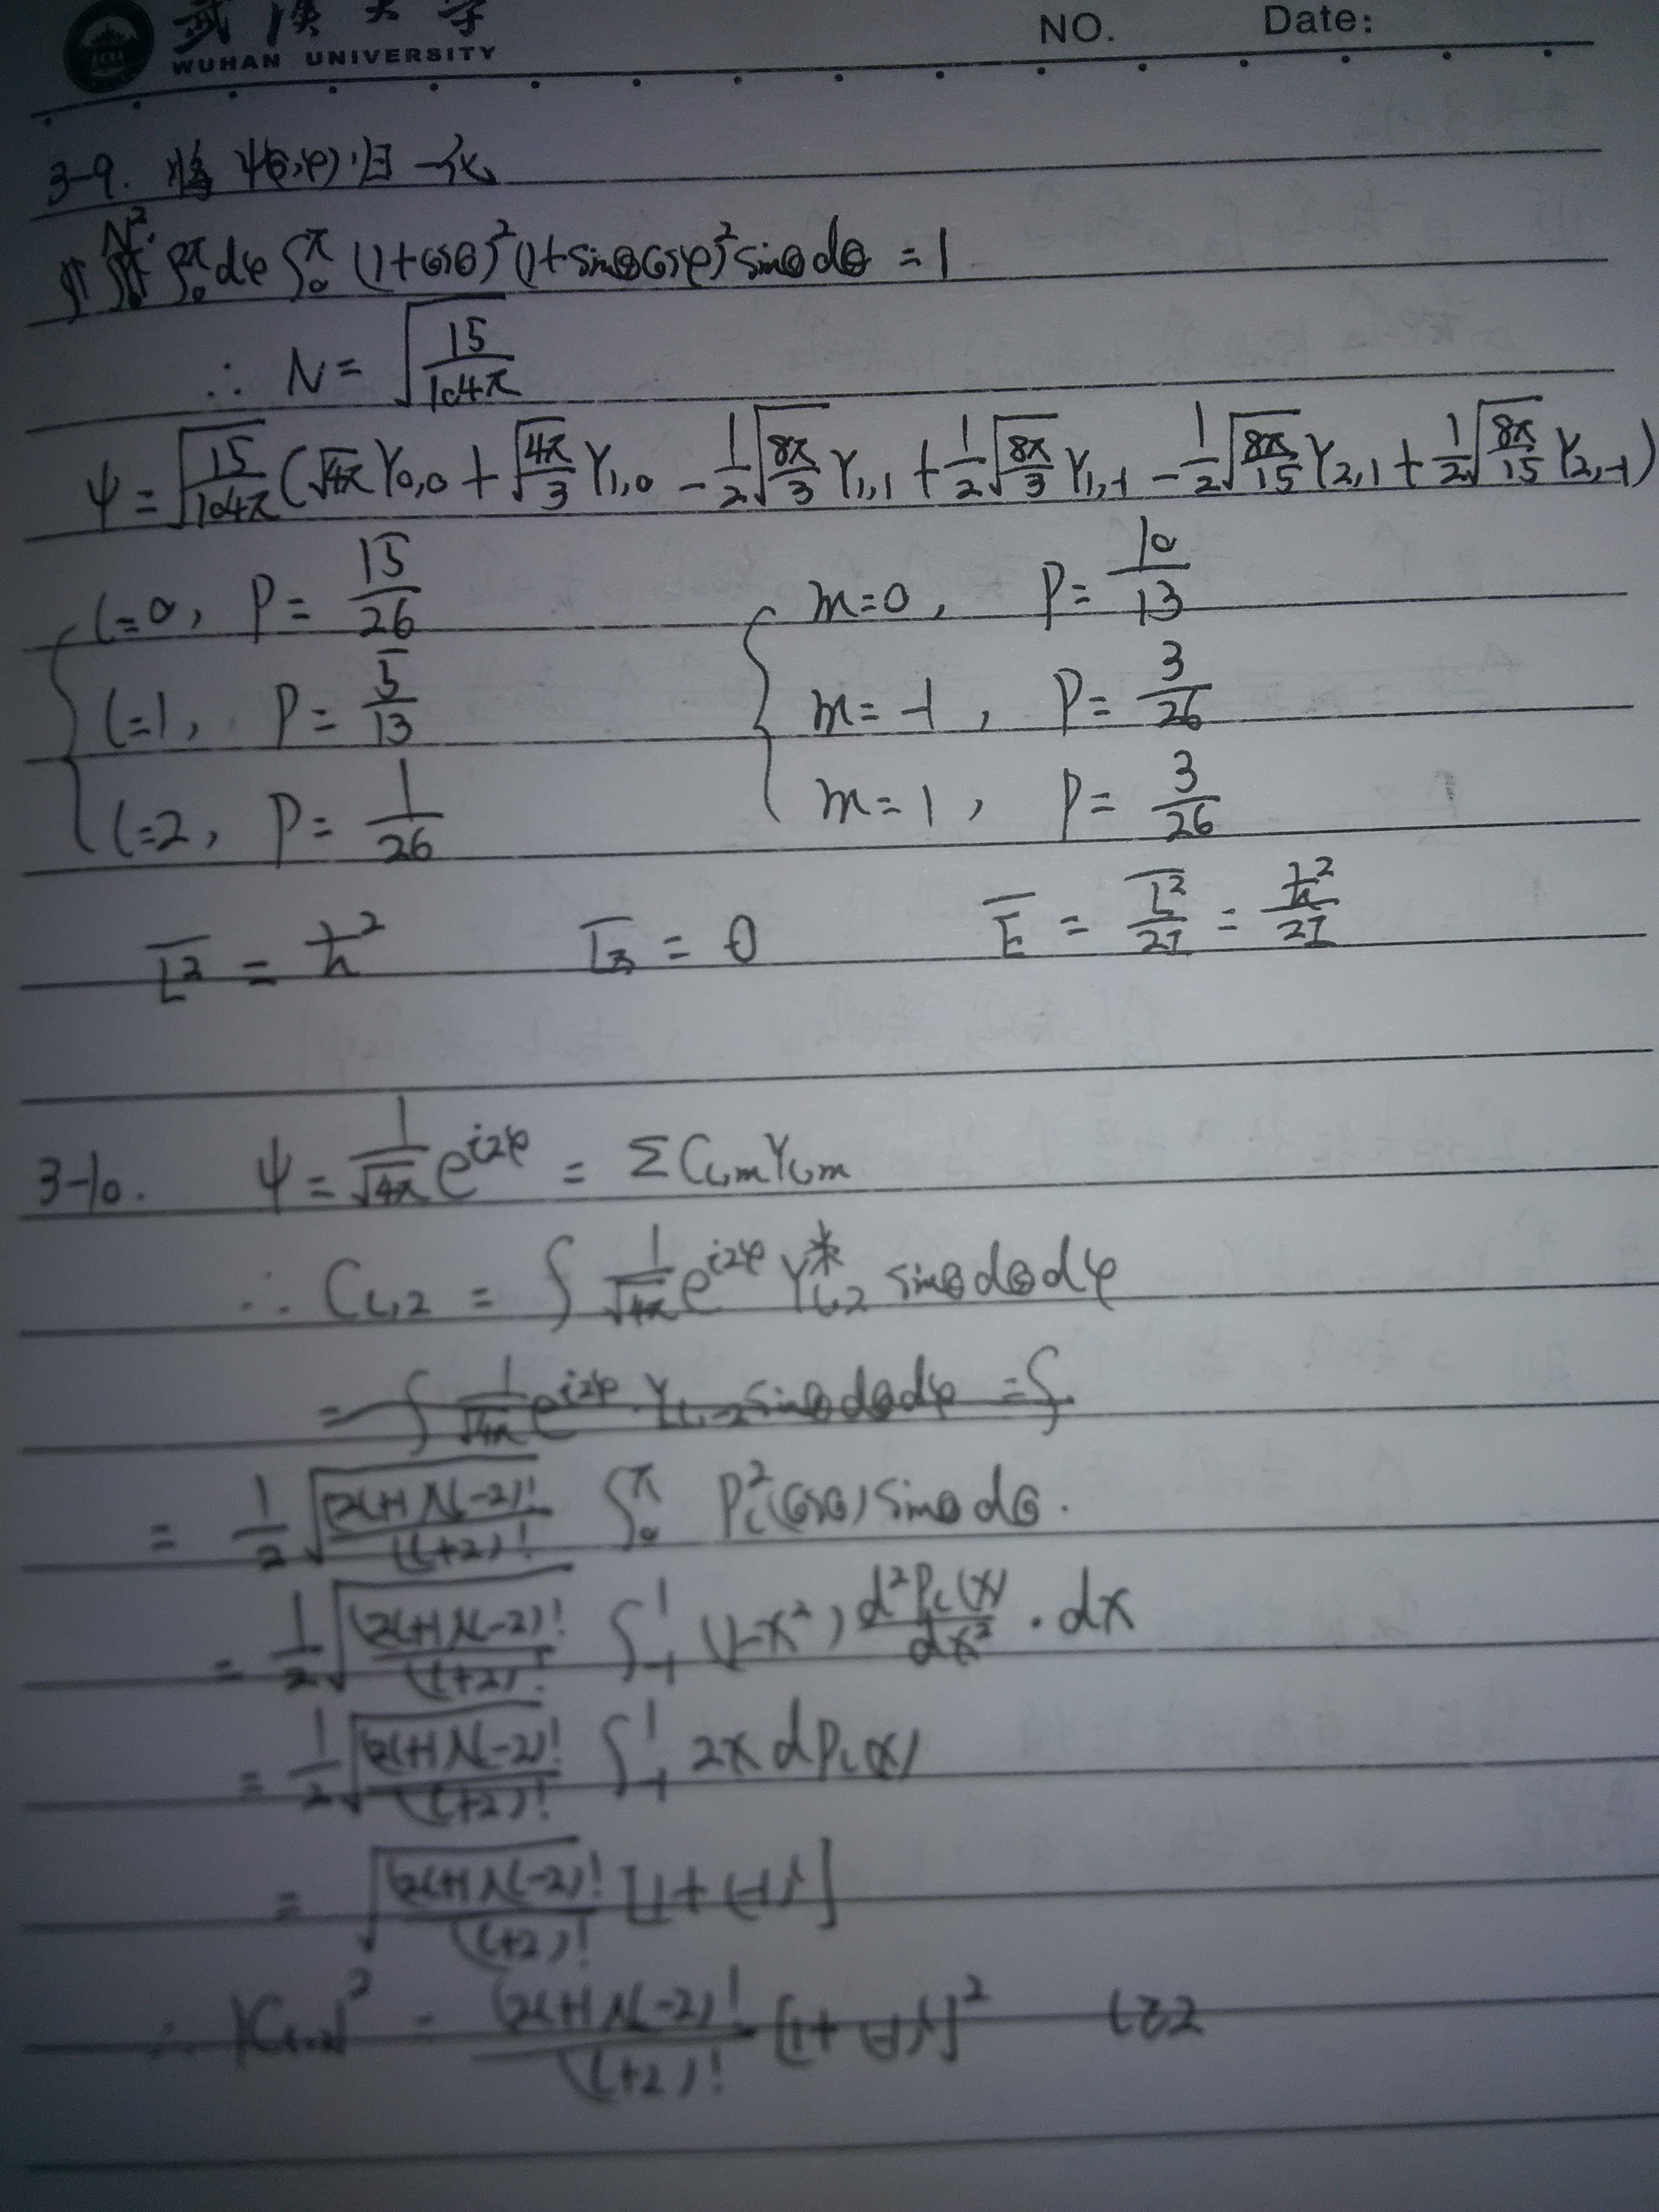 武汉大学
WUHAN UNIVERSITY
NO. Date:
3-9. 将 ψ(θ,φ) 归一化
N² ∫₀^2π dφ ∫₀^π (1+cosθ)²(1+sinθcosφ)² sinθdθ = 1
∴ N = √(15/104π)
ψ = √(15/104π) (√4π Y₀,₀ + √(4π/3) Y₁,₀ - 1/2 √(8π/3) Y₁,₁ + 1/2 √(8π/3) Y₁,₋₁ - 1/2 √(8π/15) Y₂,₁ + 1/2 √(8π/15) Y₂,₋₁)
l=0, P = 15/26 m=0, P = 10/13
l=1, P = 5/13 m=-1, P = 3/26
l=2, P = 1/26 m=1, P = 3/26
L̅²̅ = ħ² L̅z̅ = 0 E̅ = L̅²̅/2I = ħ²/2I
3-10. ψ = 1/√4π e^{i2φ} = Σ C_{l,m} Y_{l,m}
∴ C_{l,2} = ∫ 1/√4π e^{i2φ} Y*_{l,2} sinθdθdφ
= ∫ 1/√4π e^{i2φ} Y_{l,-2} sinθdθdφ = ∫
= 1/2 √((2l+1)(l-2)!/(l+2)!) ∫₀^π P_l²(cosθ) sinθdθ.
= 1/2 √((2l+1)(l-2)!/(l+2)!) ∫₋₁¹ (1-x²) d²P_l(x)/dx² · dx
= 1/2 √((2l+1)(l-2)!/(l+2)!) ∫₋₁¹ 2x dP_l(x)
= √((2l+1)(l-2)!/(l+2)!) [1+(-1)^l]
∴ |C_{l,2}|² = (2l+1)(l-2)!/(l+2)! [1+(-1)^l]² l≥2